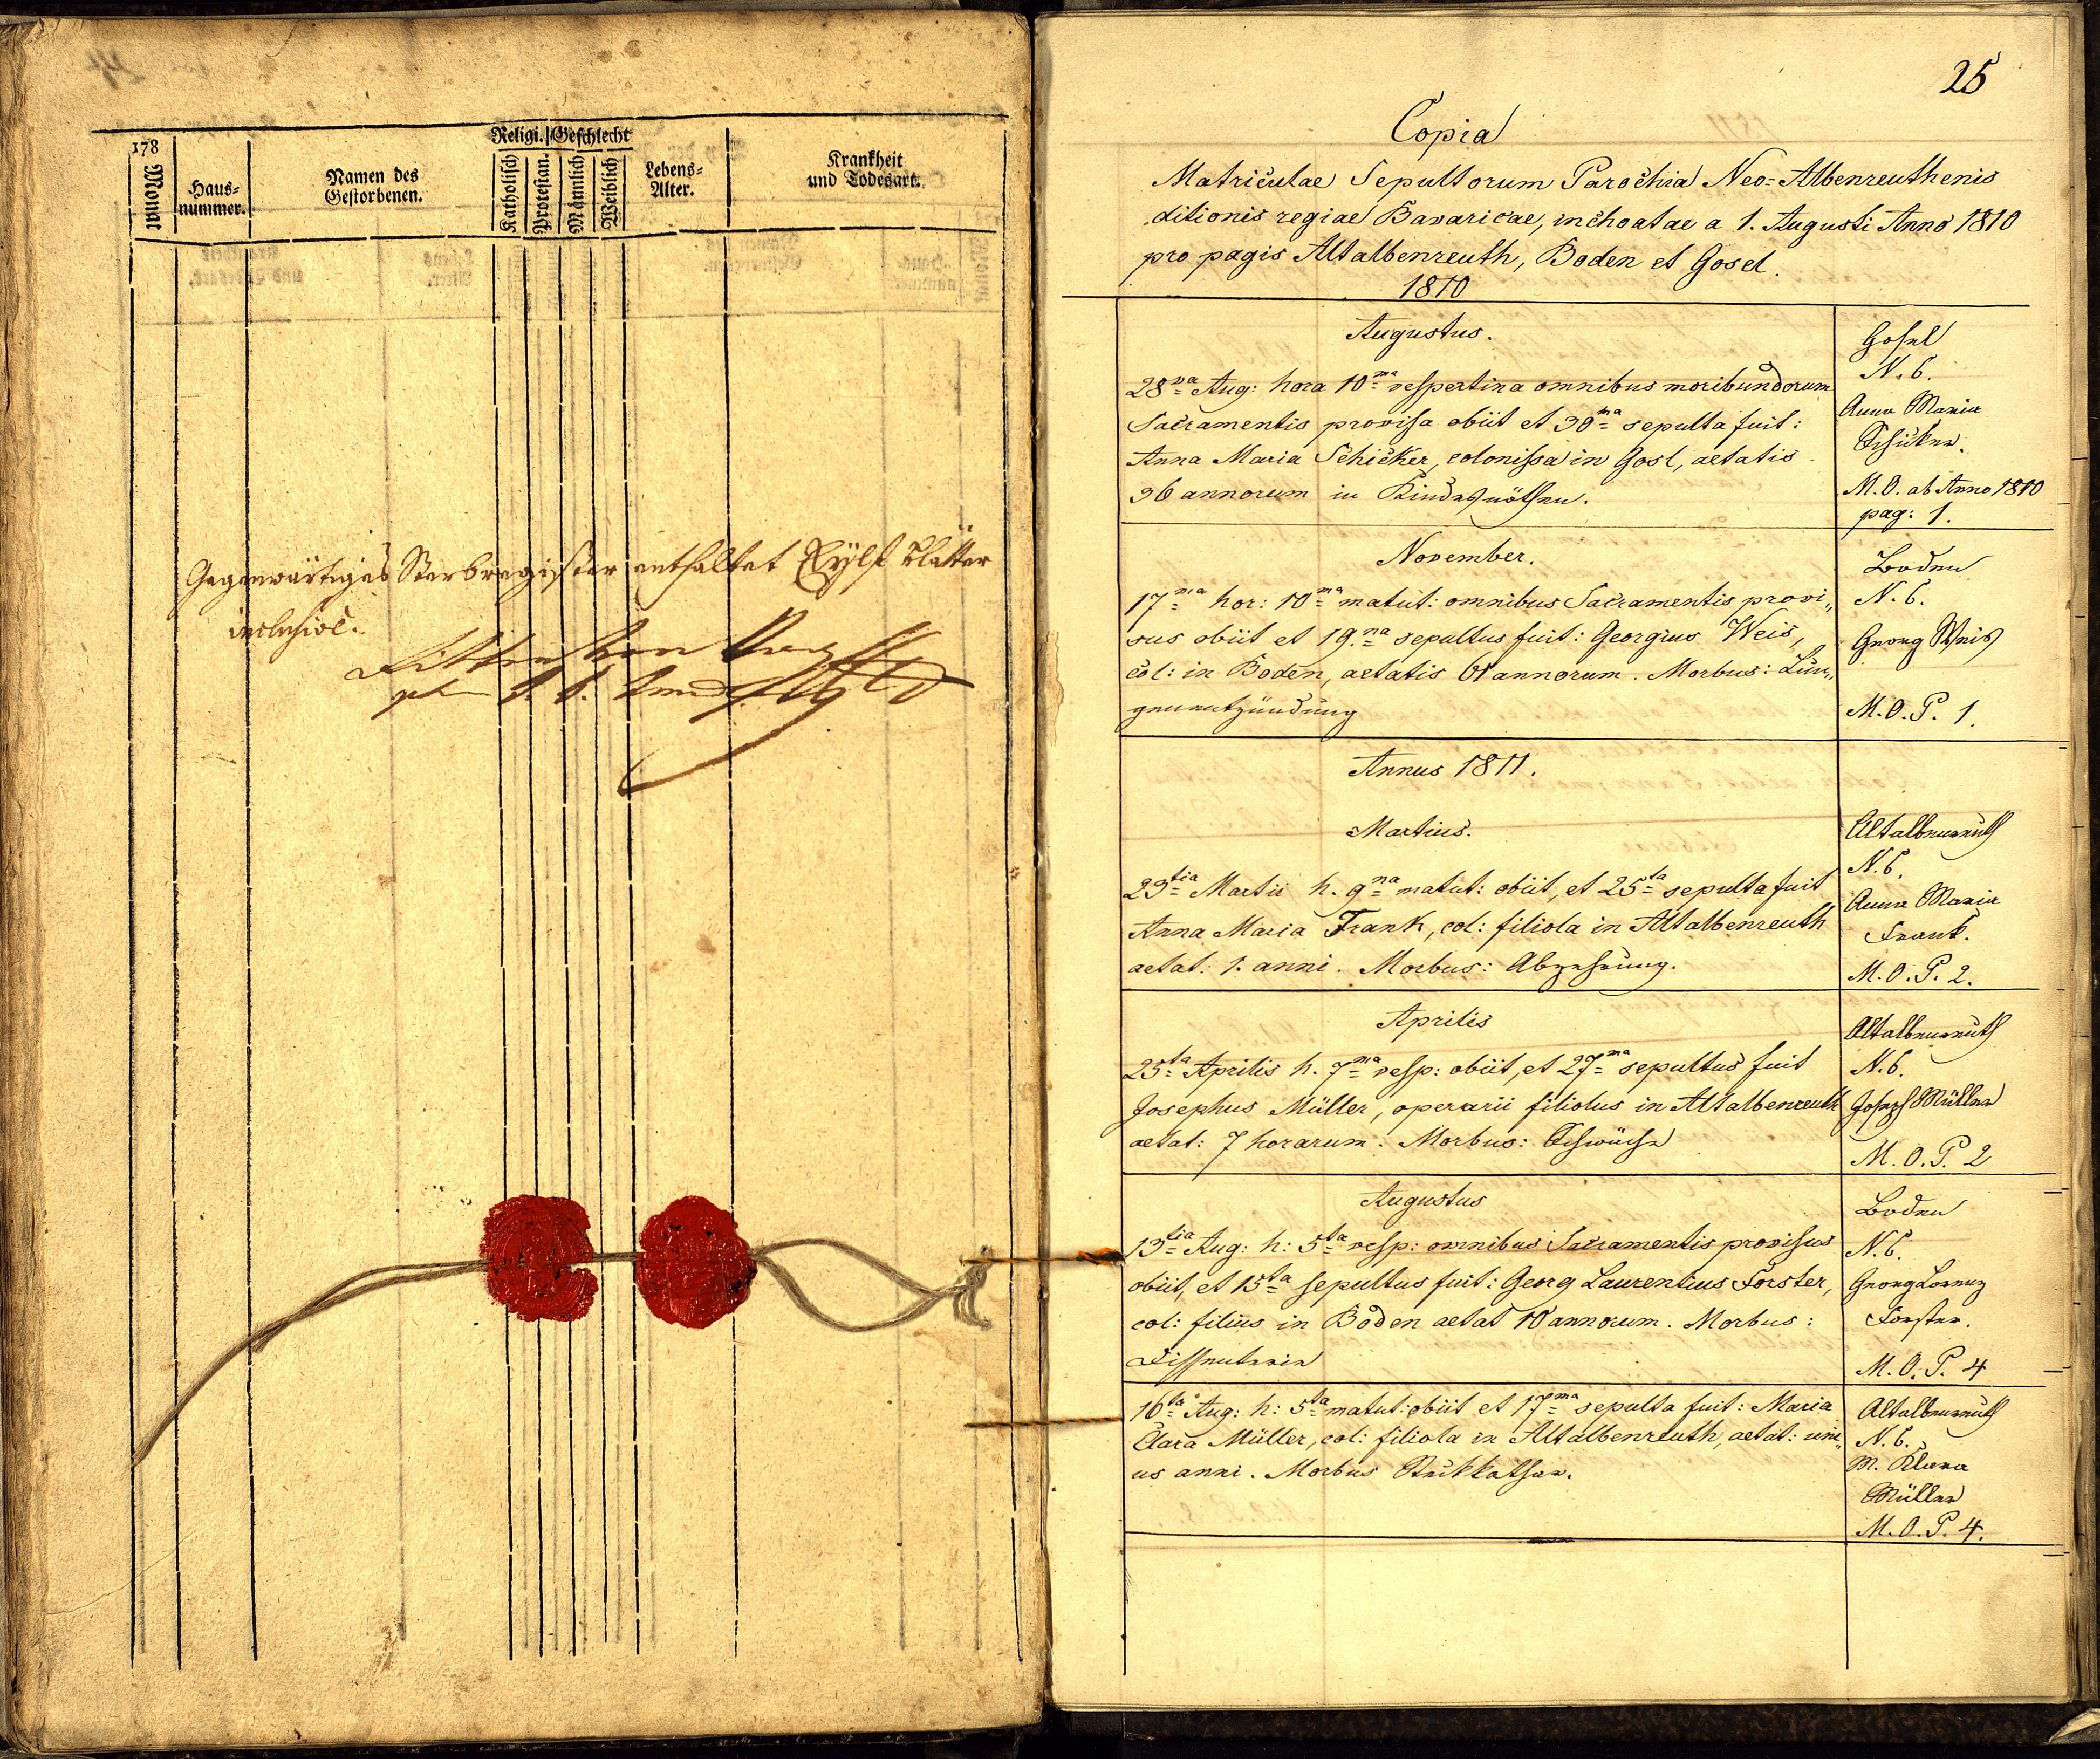 178
Monat
Haus=
nummer.
Namen des
Gestorbenen.
Religi.
Geschlecht
Katholisch
Protestan.
Männlich
Weiblich
Lebens=
Alter.
Krankheit
und Todesart.
Gegenwärtiges Sterbregister enthaltet Eylf Blätter
inclusive.
25
Copia
Matriculae Sepultorum Parochia Neo=Albenreuthenis
ditionis regiae Bavaricae, inchoatae a 1. Augusti Anno 1810
pro pagis Altalbenreuth, Boden et Gosel.
1810
Augustus.
28va Aug: hora 10ma vespertina omnibus moribundorum
Sacramentis provisa obiit et 30ma sepulta fuit:
Anna Maria Schicker, colonissa in Gosl, aetatis
36 annorum in Kindesnöthen.
Gosel
N. 6.
Anna Maria
Schicker.
M. O. ab Anno 1810
pag: 1.
November.
17ma hor: 10ma matut: omnibus Sacramentis provi„
sus obiit et 19.na sepultus fuit: Georgius Weis,
col: in Boden, aetatis 61 annorum. Morbus: Lun„
genentzündung
Boden
N. 6.
Georg Weis
M. O. P. 1.
Annus 1811.
Martius.
23tia Martii h. 9na matut: obiit, et 25ta sepulta fuit
Anna Maria Frank, col: filiola in Altalbenreuth
aetat: 1. anni. Morbus: Abzehrung.
Altalbenreuth
N. 6.
Anna Maria
Frank.
M. O. P. 2.
Aprilis
25ta Aprilis h. 7ma vesp: obiit, et 27ma sepultus fuit
Josephus Müller, operarii filiolus in Altalbenreuth
aetat: 7 horarum. Morbus: Schwäche
Altalbenreuth
N. 6.
Joseph Müller
M. O. P. 2
Augustus
13tia Aug: h: 5ta vesp: omnibus Sacramentis provisus
obiit, et 15ta sepultus fuit: Georg Laurentius Forster,
col: filius in Boden aetat 10 annorum. Morbus:
Dissenterie
Boden
N. 6.
Georg Lorenz
Forster.
M. O. P. 4
16ta Aug: h: 5ta matut: obiit et 17ma sepulta fuit: Maria
Clara Müller, col: filiola in Altalbenreuth, aetat: uni„
us anni. Morbus Stickkathar.
Altalbenreuth
N. 6.
M. Klara
Müller
M. O. P. 4.